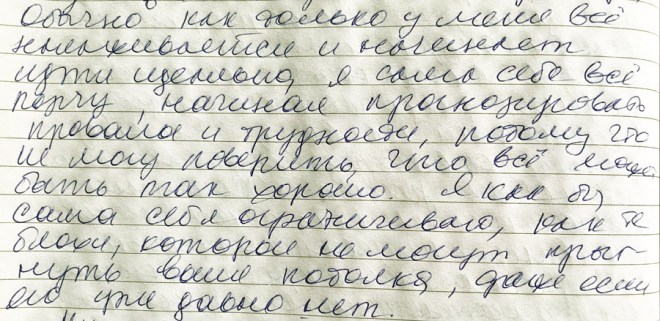 Обычно как только у меня всё
налаживается и начинает
идти идеально, я сама себе всё
порчу, начиная прогнозировать
провалы и трудности, потому что
не могу поверить, что всё может
быть так хорошо. Я как бы
сама себя ограничиваю, как те
блохи, которые не могут прыг-
нуть выше потолка, даже если
его уже давно нет.